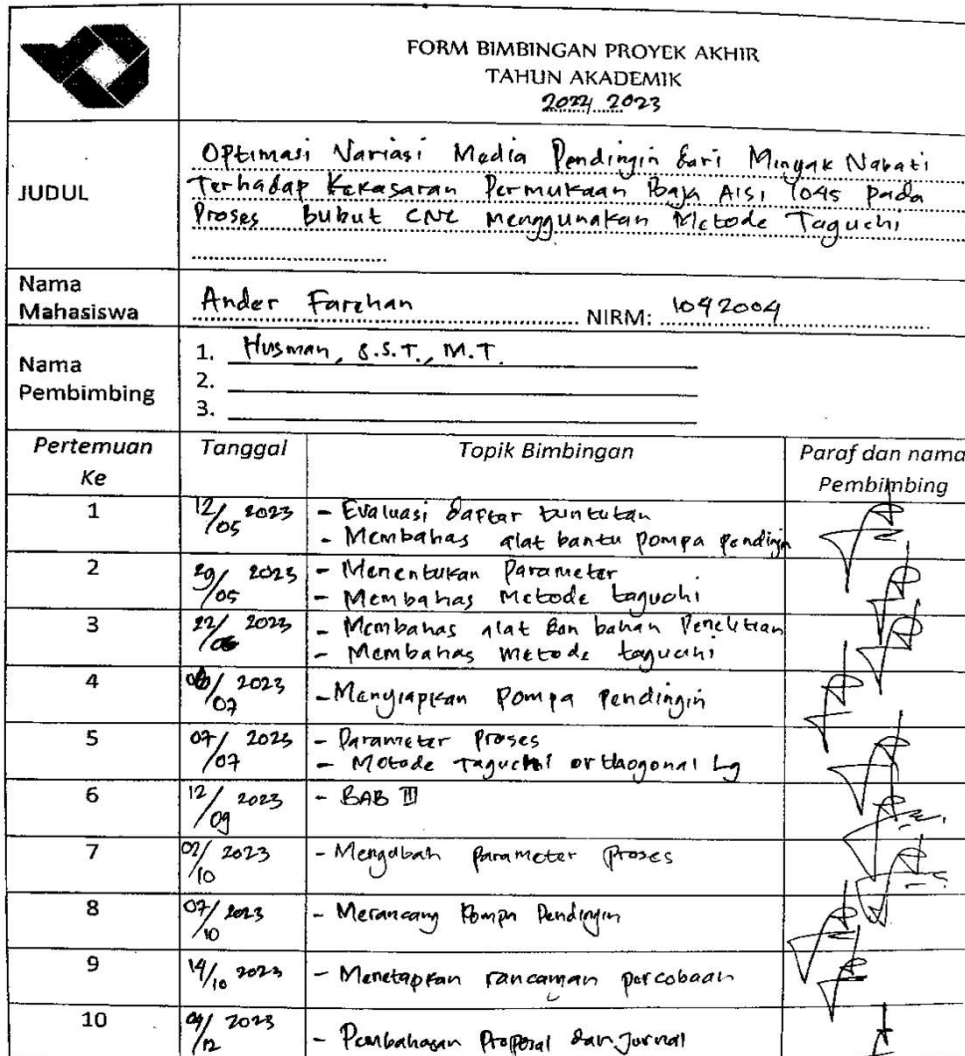 FORM BIMBINGAN PROYEK AKHIR
TAHUN AKADEMIK
2022/2023
JUDUL
Optimasi Variasi Media Pendingin dari Minyak Nabati
Terhadap Kekasaran Permukaan Baja AISI 1045 pada
Proses bubut CNC menggunakan Metode Taguchi
Nama
Mahasiswa
Ander Farehan NIRM: 1042004
Nama
Pembimbing
1. Husman, S.S.T., M.T.
2.
3.
Pertemuan
Ke
Tanggal
Topik Bimbingan
Paraf dan nama
Pembimbing
1 12/05 2023 - Evaluasi daftar tuntutan
- Membahas alat bantu pompa pendingin
2 29/05 2023 - Menentukan Parameter
- Membahas Metode taguchi
3 22/06 2023 - Membahas alat dan bahan Penelitian
- Membahas metode taguchi
4 /07 2023 - Menyiapkan Pompa Pendingin
5 07/07 2023 - Parameter Proses
- Metode Taguchi orthogonal L9
6 12/09 2023 - BAB III
7 02/10 2023 - Mengubah parameter proses
8 07/10 2023 - Merancang Pompa Pendingin
9 14/10 2023 - Menetapkan rancangan percobaan
10 04/12 2023 - Pembahasan Proposal dan Jurnal